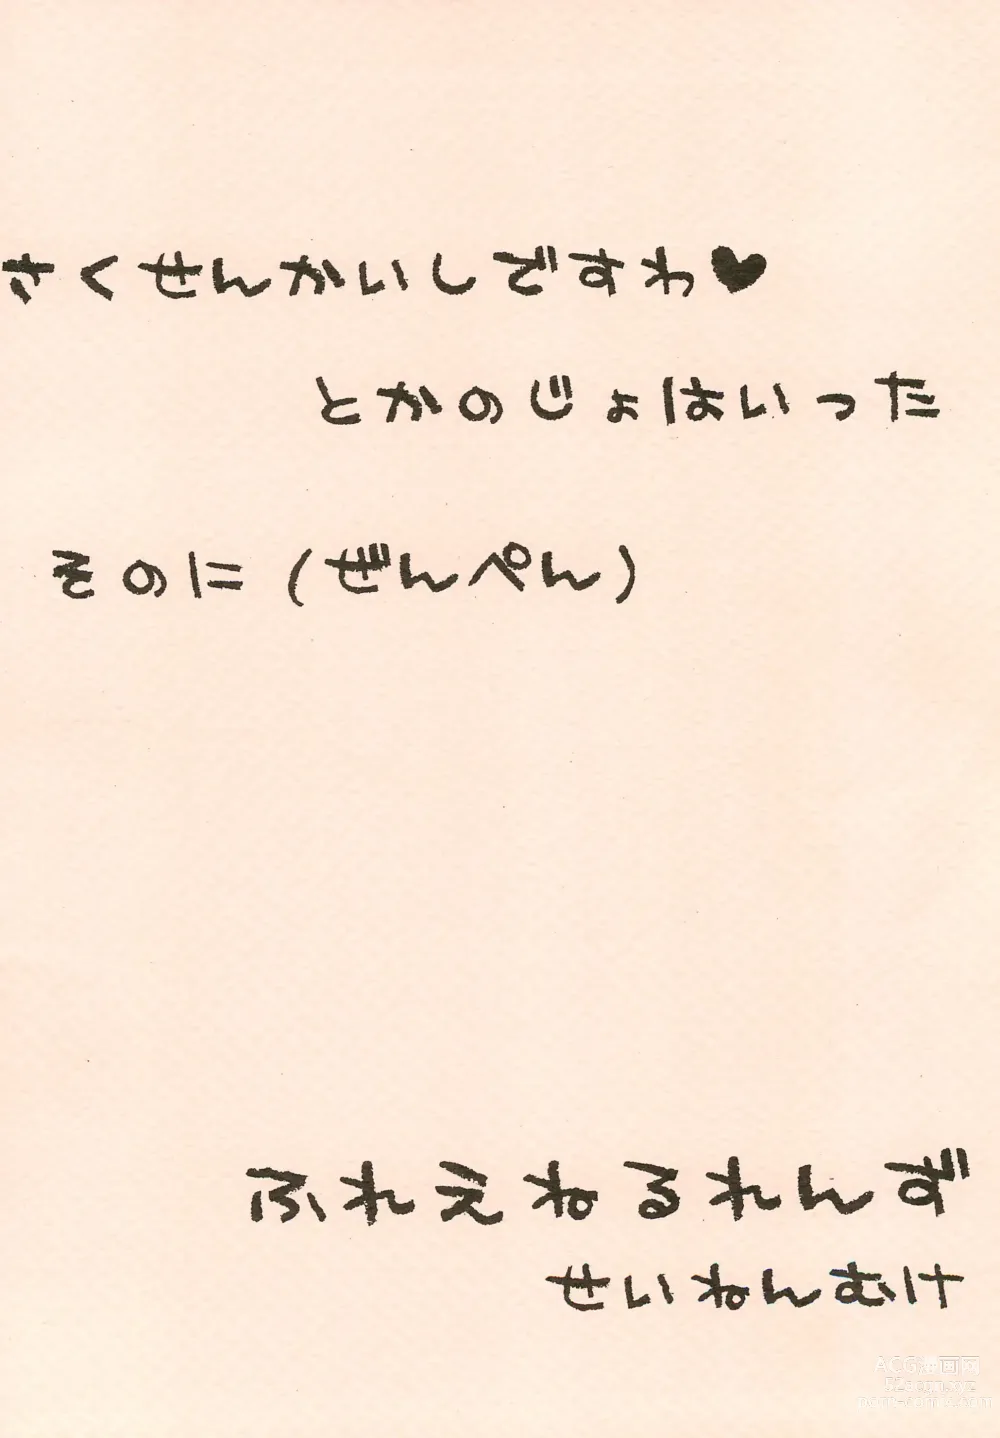 さくせんかいしですわ♥
とかのじょはいった
そのに(ぜんぺん)
ふれえねるれんず
せいねんむけ
ACG漫画网